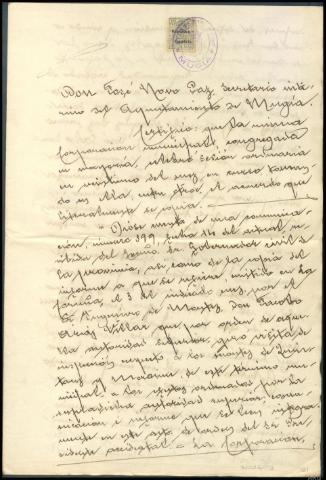 MUGIA
Don José Novo Paz Secretario inte-
rino del Ayuntamiento de Mugia.
Certifico: que la misma
Corporacion municipal, congregada
en mayoria, celebró sesion ordinaria
en veintiuno del mes en curso toman-
do en ella, entre otros, el acuerdo que
literalmente se copia.
"Diose cuenta de una comunica-
ción, número 399, fecha 14 del actual, re-
mitida del Excmo. Sr. Gobernador civil de
la provincia, asi como de la copia del
informe a que se refiere, emitido en La
Coruña, el 3 del indicado mes, por el
Sr. Ingeniero de Montes, Don Jacobo
Arias Villar que por orden de aque-
lla autoridad superior, giro visita de
inspección respecto a los montes de Quin-
tans y Moraime de este termino mu-
nicipal, a los efectos ordenados por la
autoridad superior, comu-
nicación e informe que se leen integra-
mente en este acto de orden del Sr. Pre-
sidente accidental. = La Corporacion,